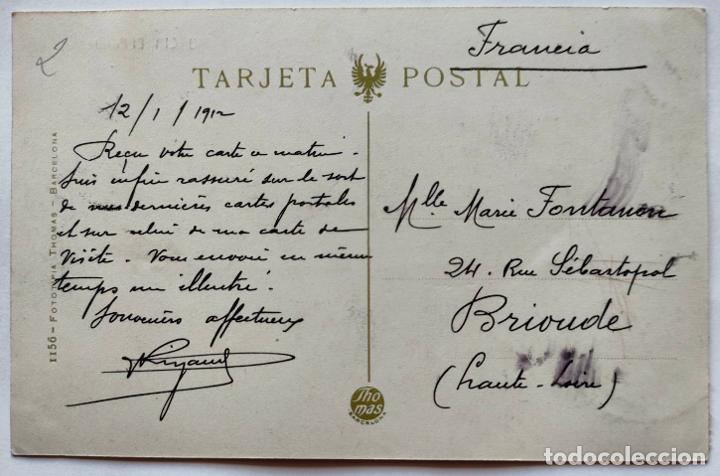 2
Francia
TARJETA POSTAL
12/1/1912
Reçu votre carte ce matin.
Suis enfin rassuré sur le sort
de mes dernières cartes postales
et sur celui de ma carte de
visite. Vous envoie en même
temps un illustré.
Souvenirs affectueux
Mlle Marie Fontanon
24. Rue Sébastopol
Brioude
(Haute-Loire)
1156 - FOTOTIPIA THOMAS - BARCELONA
Thomas
BARCELONA
todocoleccion.net